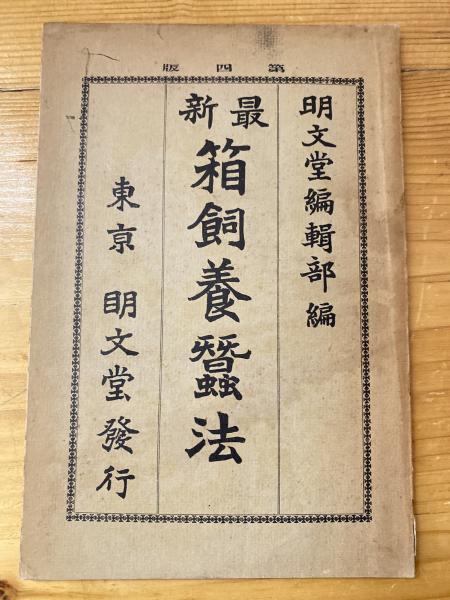 第四版
明文堂編輯部編
最新
箱飼養蠶法
東京 明文堂發行